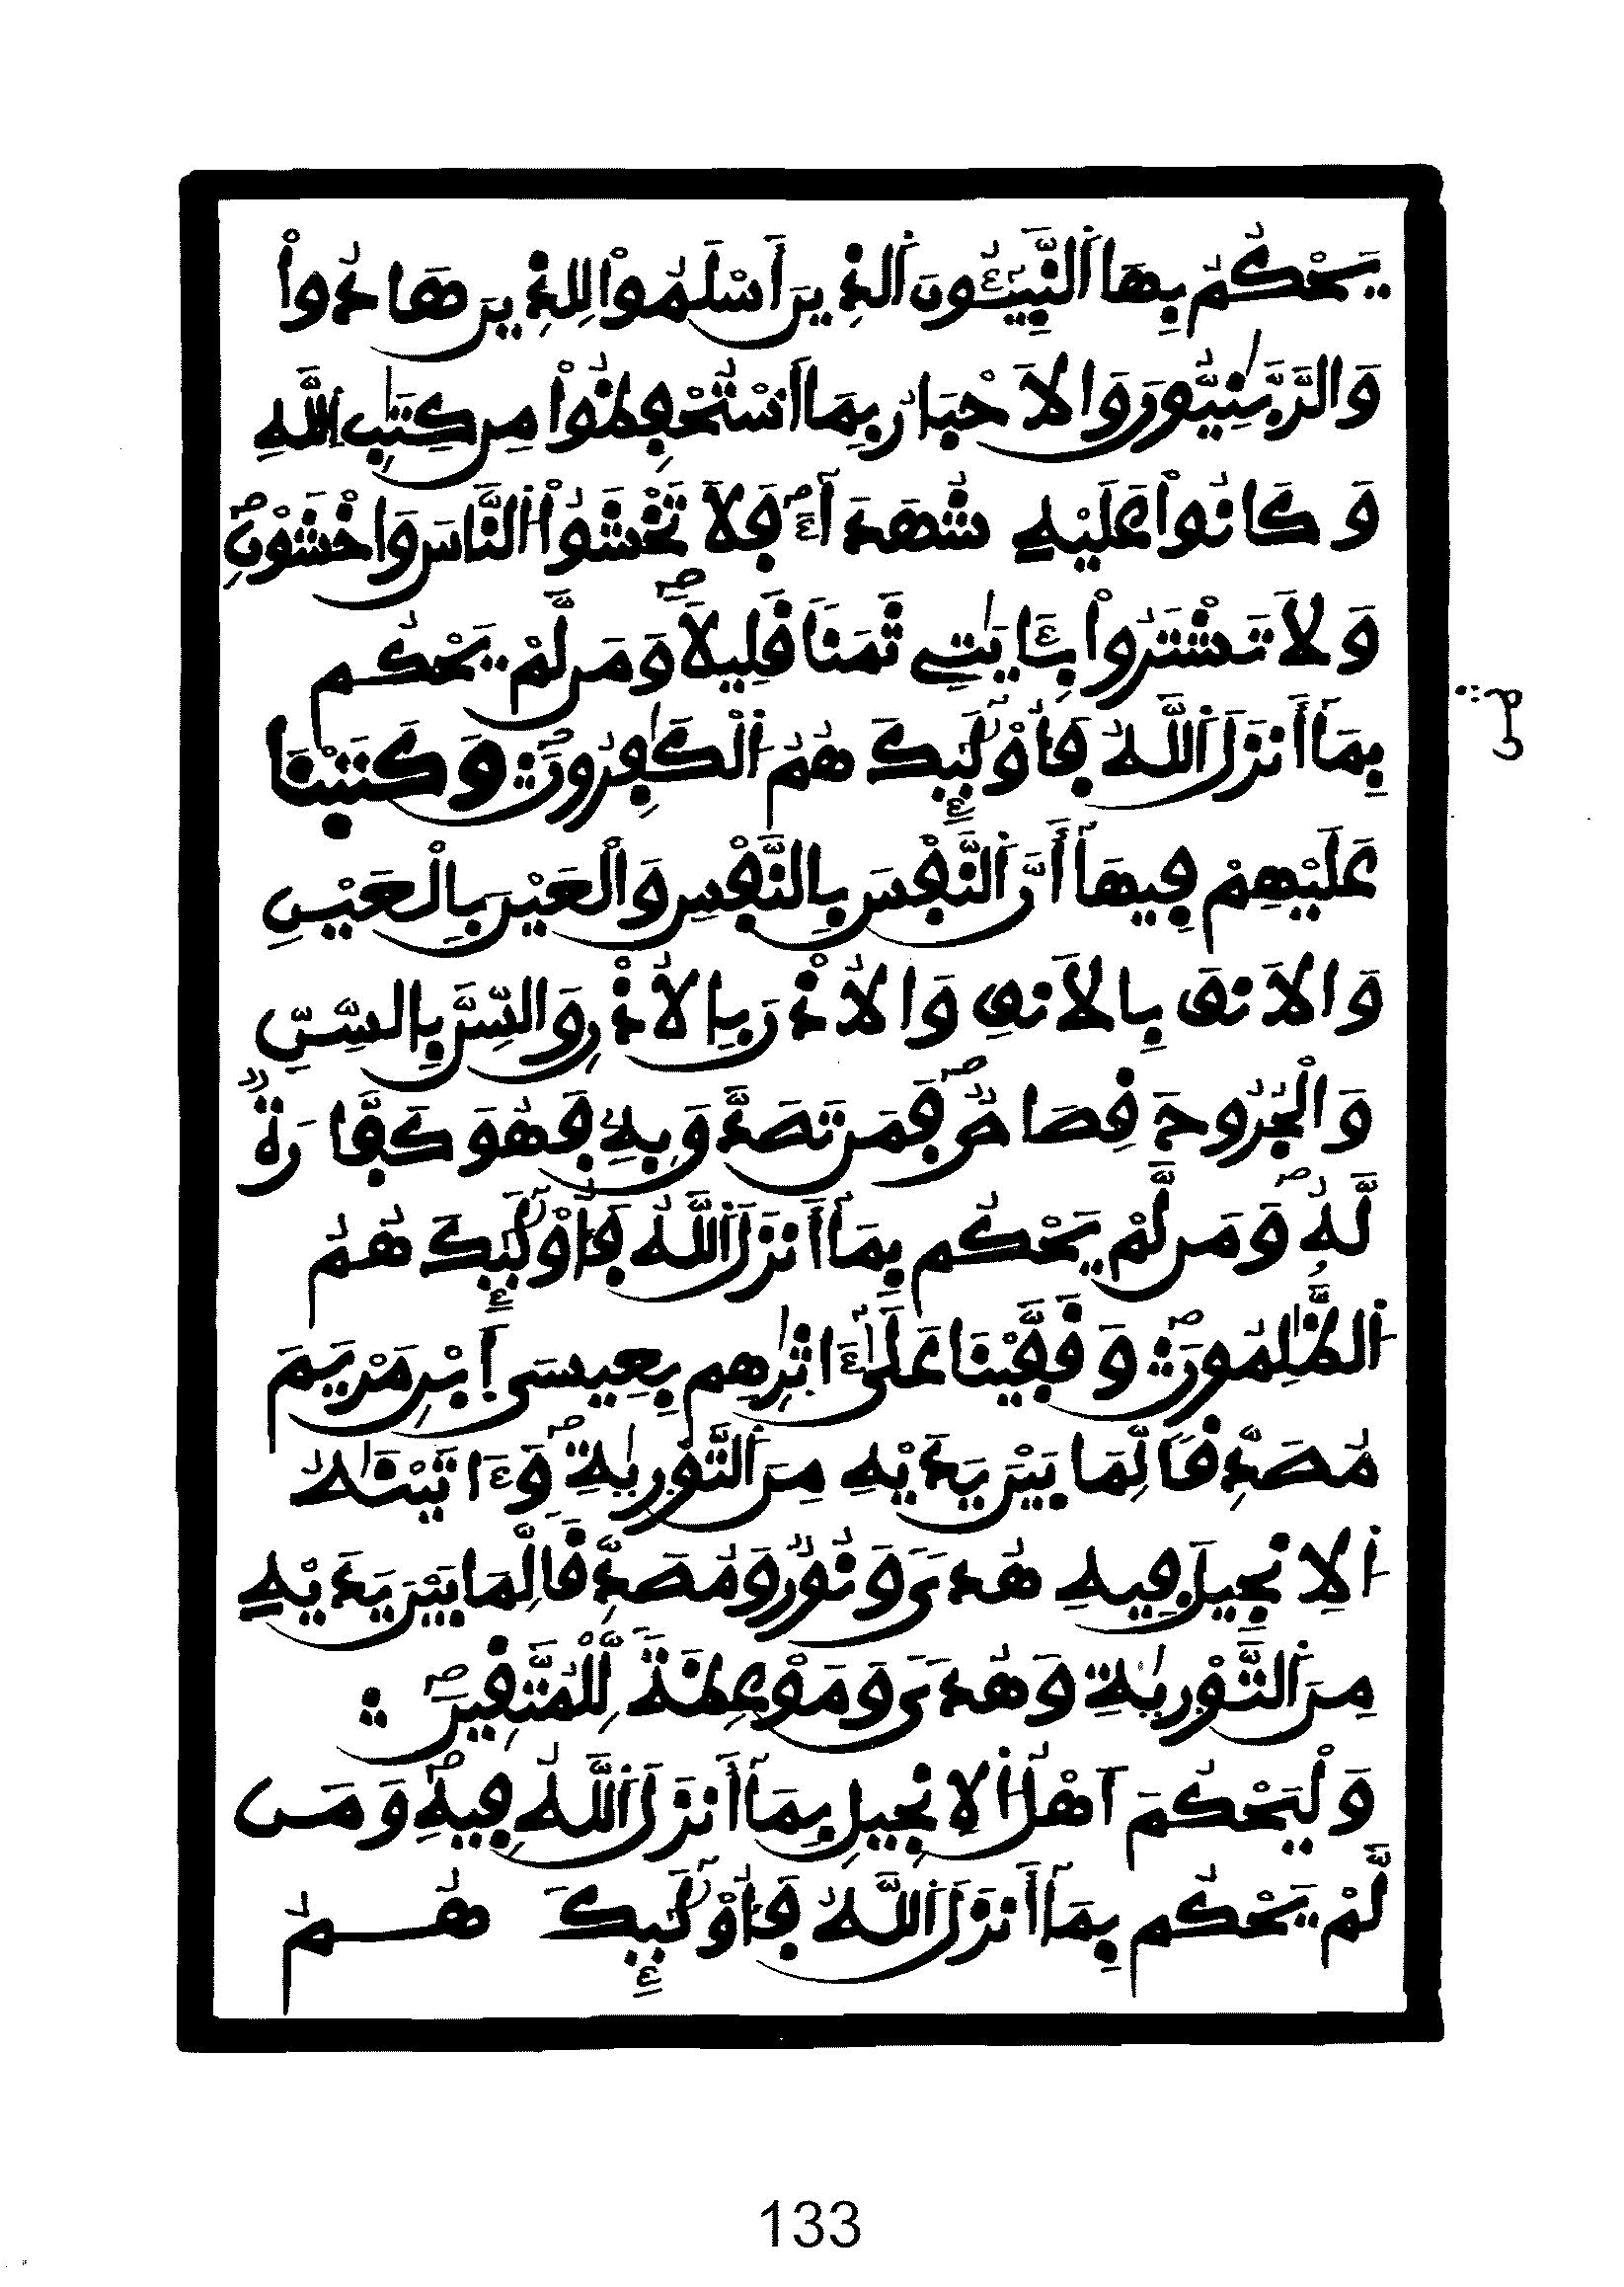 يَحْكُمُ بِهَا اَ۬لنَّبِيٓـُٔونَ اَ۬لذِينَ أَسْلَمُواْ لِلذِينَ هَادُواْ
وَالرَّبَّٰنِيُّونَ وَالَاحْبَارُ بِمَا اَ۟سْتُحْفِظُواْ مِن كِتَٰبِ اِ۬للَّهِ
وَكَانُواْ عَلَيْهِ شُهَدَآءَۖ فَلَا تَخْشَوُاْ اُ۬لنَّاسَ وَاخْشَوْنِۖ
وَلَا تَشْتَرُواْ بِـَٔايَٰتِے ثَمَناٗ قَلِيلاٗۖ وَمَن لَّمْ يَحْكُم
بِمَآ أَنزَلَ اَ۬للَّهُ فَأُوْلَٰٓئِكَ هُمُ اُ۬لْكَٰفِرُونَۖ وَكَتَبْنَا
عَلَيْهِمْ فِيهَآ أَنَّ اَ۬لنَّفْسَ بِالنَّفْسِ وَالْعَيْنَ بِالْعَيْنِ
وَالَانفَ بِالَانفِ وَالُاذْنَ بِالُاذْنِ وَالسِّنَّ بِالسِّنِّ
وَالْجُرُوحَ قِصَاصٞۖ فَمَن تَصَدَّقَ بِهِۦ فَهُوَ كَفَّارَةٞ
لَّهُۥۖ وَمَن لَّمْ يَحْكُم بِمَآ أَنزَلَ اَ۬للَّهُ فَأُوْلَٰٓئِكَ هُمُ
اُ۬لظَّٰلِمُونَۖ وَقَفَّيْنَا عَلَىٰٓ ءَاثٰ۪رِهِم بِعِيسَى اَ۪بْنِ مَرْيَمَ
مُصَدِّقاٗ لِّمَا بَيْنَ يَدَيْهِ مِنَ اَ۬لتَّوْر۪يٰةِۖ وَءَاتَيْنَٰهُ
اُ۬لِانجِيلَ فِيهِ هُدىٗ وَنُورٞ وَمُصَدِّقاٗ لِّمَا بَيْنَ يَدَيْهِ
مِنَ اَ۬لتَّوْر۪يٰةِ وَهُدىٗ وَمَوْعِظَةٗ لِّلْمُتَّقِينَۖ
وَلْيَحْكُمَ اَهْلُ اُ۬لِانجِيلِ بِمَآ أَنزَلَ اَ۬للَّهُ فِيهِۖ وَمَن
لَّمْ يَحْكُم بِمَآ أَنزَلَ اَ۬للَّهُ فَأُوْلَٰٓئِكَ هُمُ
133